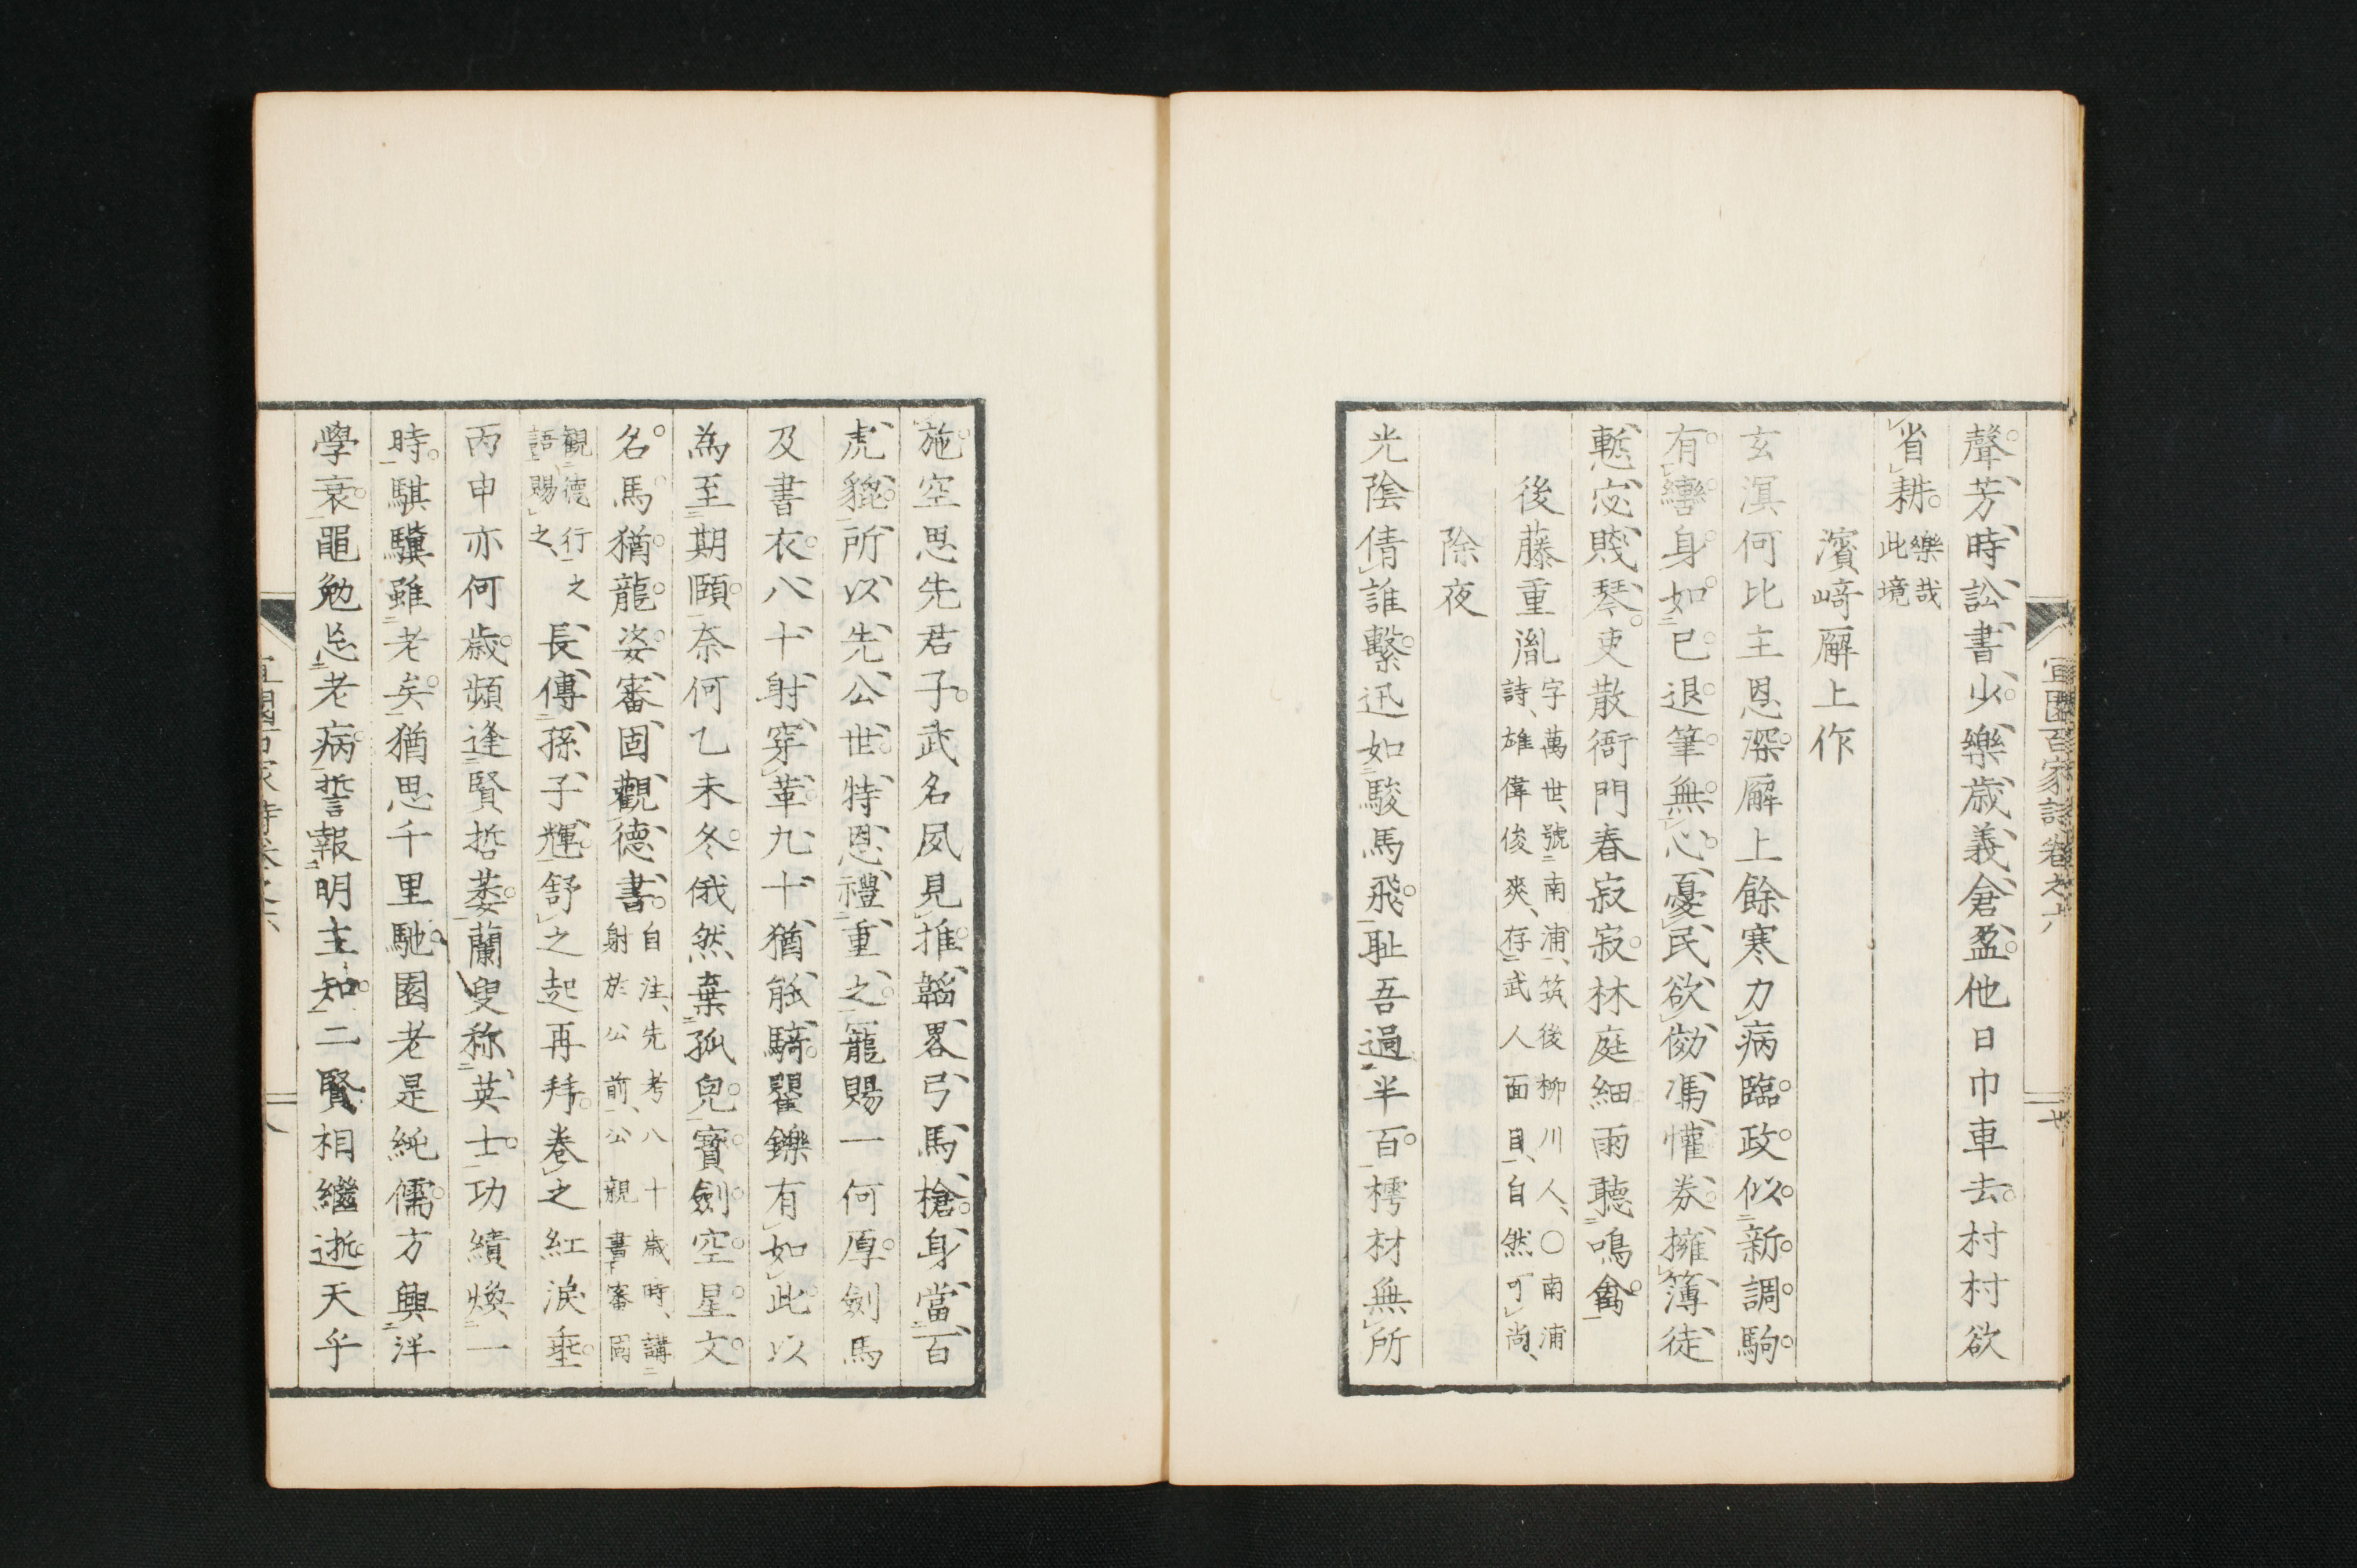 宜園百家詩卷之六
聲芳時訟書少樂歳義倉盈他日巾車去村村欲
省耕 樂哉此境
濱﨑廨上作
玄溟何比主恩深廨上餘寒力病臨政似新調駒
有轡身如已退筆無心憂民欲傚馮懽券擁簿徒
慙宓賤琴吏散衙門春寂寂林庭細雨聽鳴禽
後藤重胤 字萬世、號南浦、筑後柳川人、〇南浦
詩、雄偉俊爽、存武人面目、自然可尚、
除夜
光陰倩誰繫迅如駿馬飛耻吾過半百樗材無所
施空思先君子武名夙見推韜畧弓馬槍身當百
虎貔所以先公世特恩禮重之寵賜一何厚劍馬
及書衣八十射穿革九十猶能騎矍鑠有如此以
為至期頤奈何乙未冬俄然棄孤兒寶劍空星文
名馬猶龍姿審固觀德書 自注、先考八十歳時、講
射於公前、公親書審固
觀德行之
語賜之、
長傳孫子輝舒之起再拜卷之紅淚垂
丙申亦何歳頻逢賢哲萎蘭叟称英士功績煥一
時騏驥雖老矣猶思千里馳園老是純儒方輿洋
學衰黽勉忘老病誓報明主知二賢相繼逝天乎